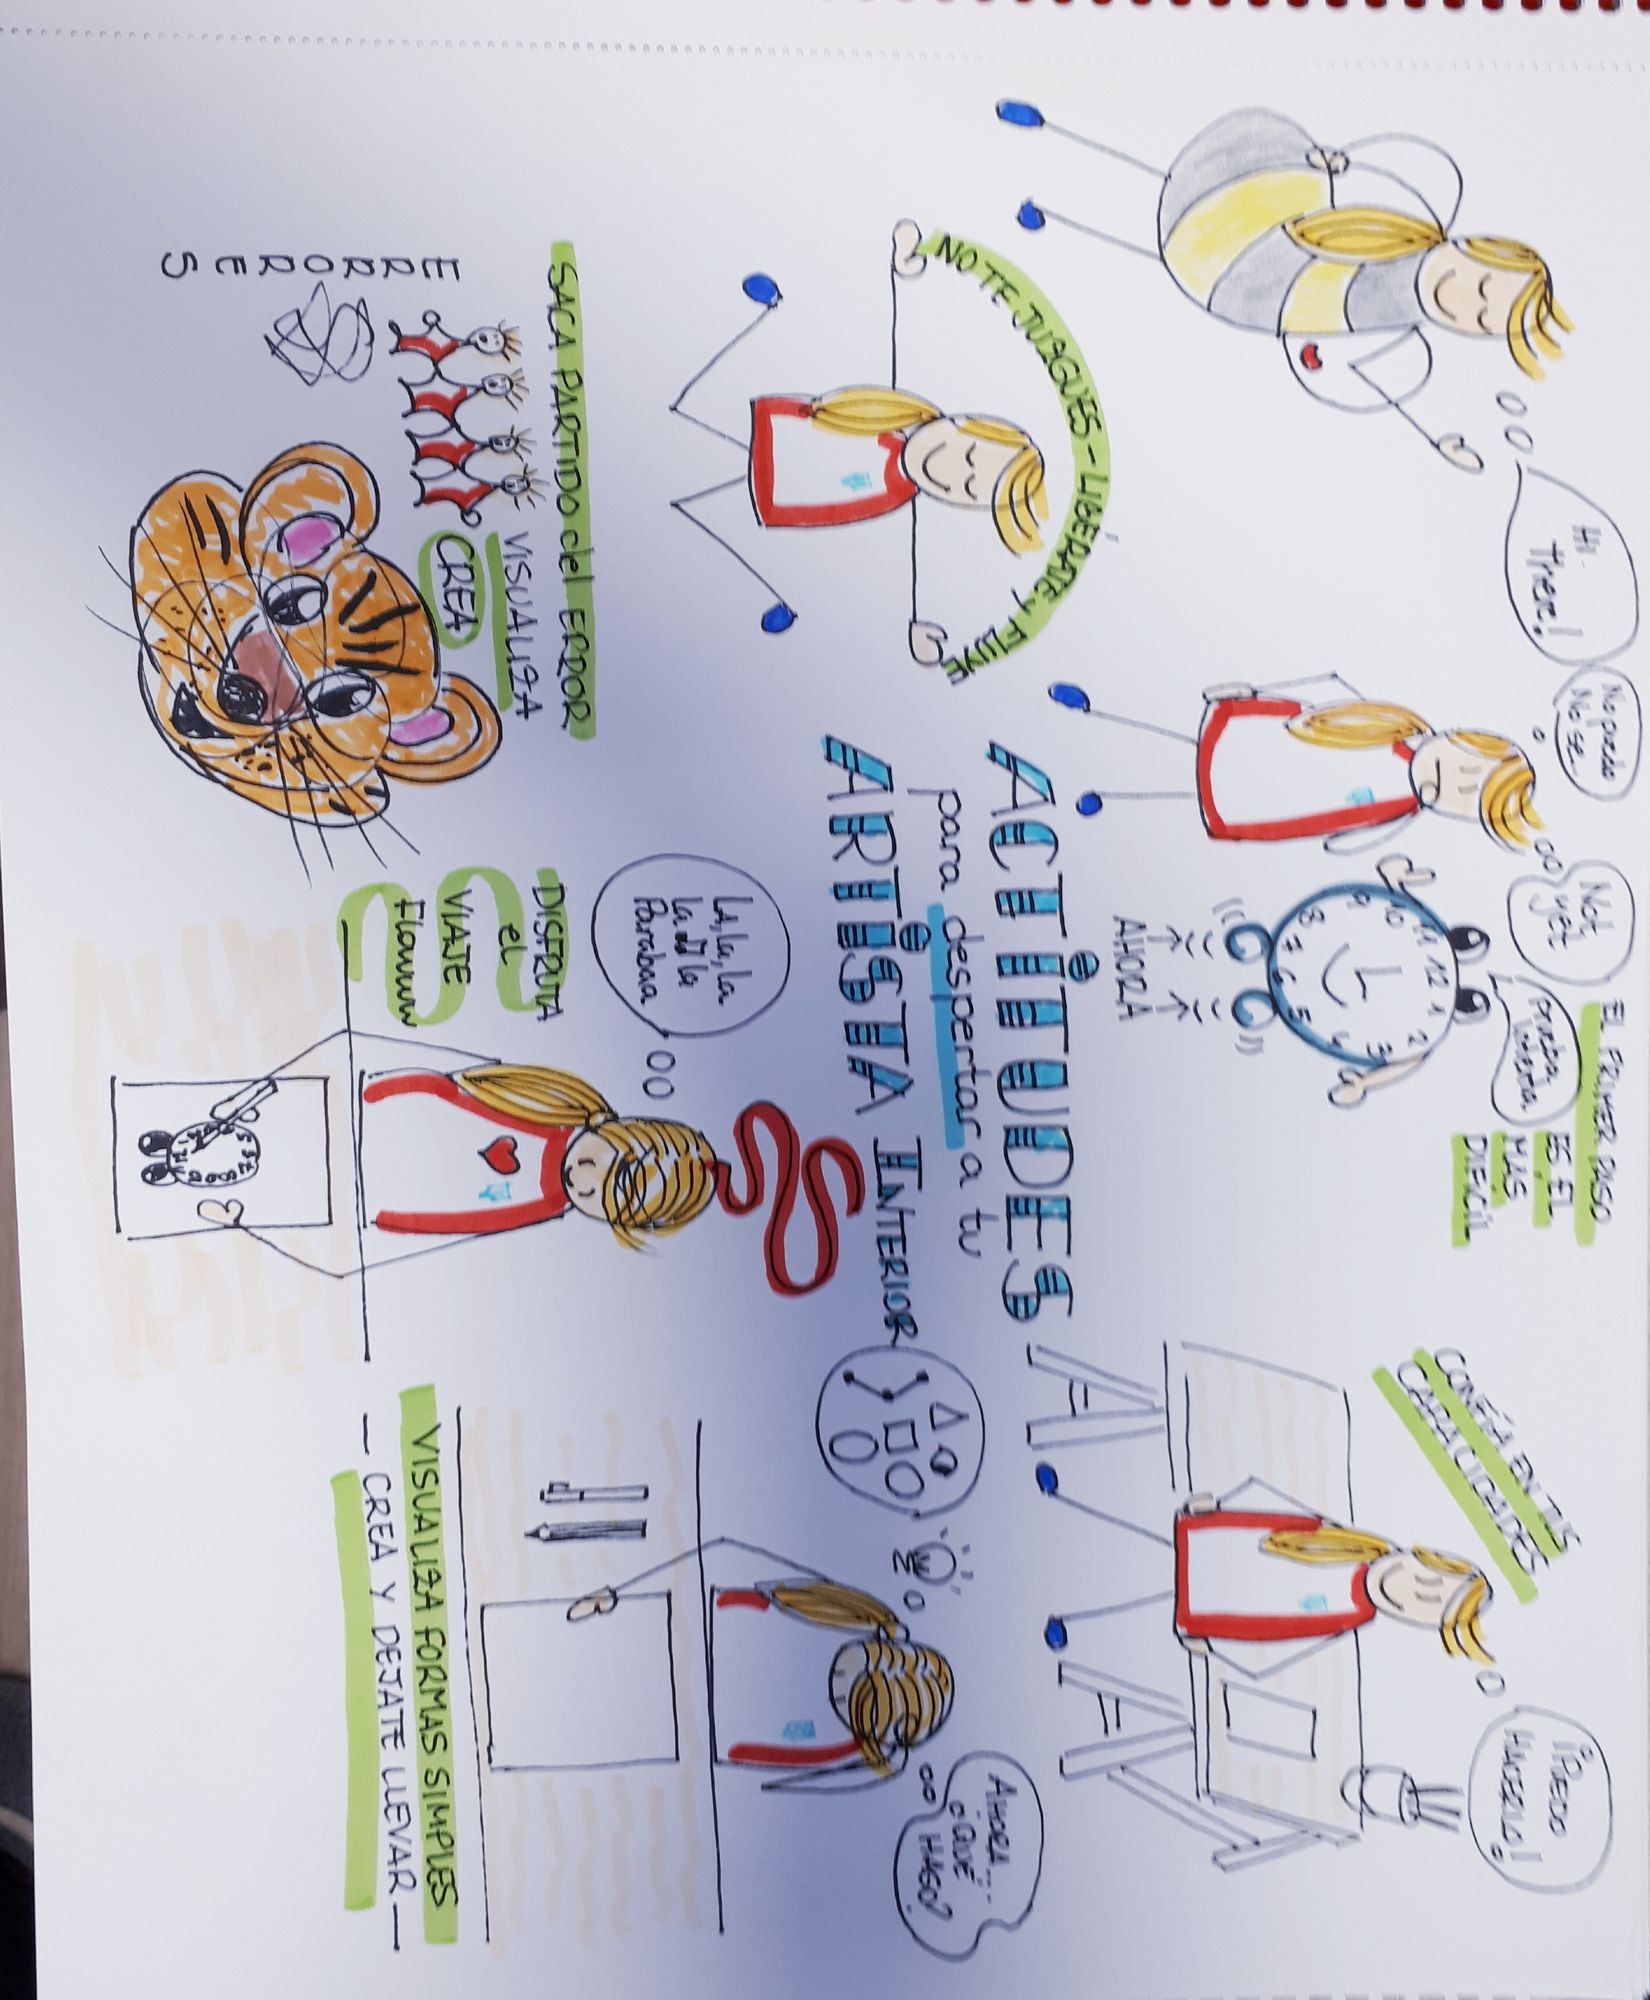 Hi
There!
No puedo
No se...
Not
yet
Prueba,
EL PRIMER PASO
ES EL
MAS
DIFICIL
10 11 12 1 2 3 4 5 6 7 8 9
AHORA
CONFÍA EN TUS
CAPACIDADES
¡PUEDO
HACERLO!
NO TE JUZGUES - LIBÉRATE y FLUYE
ACTITUDES
para despertar a tu
ARTISTA INTERIOR
SACA PARTIDO del ERROR
VISUALIZA
CREA
ERRORES
LA, la, la
Parabara
DISFRUTA
el
VIAJE
Flowww
AHORA....
¿QUÉ
HAGO?
VISUALIZA FORMAS SIMPLES
— CREA Y DEJATE LLEVAR —